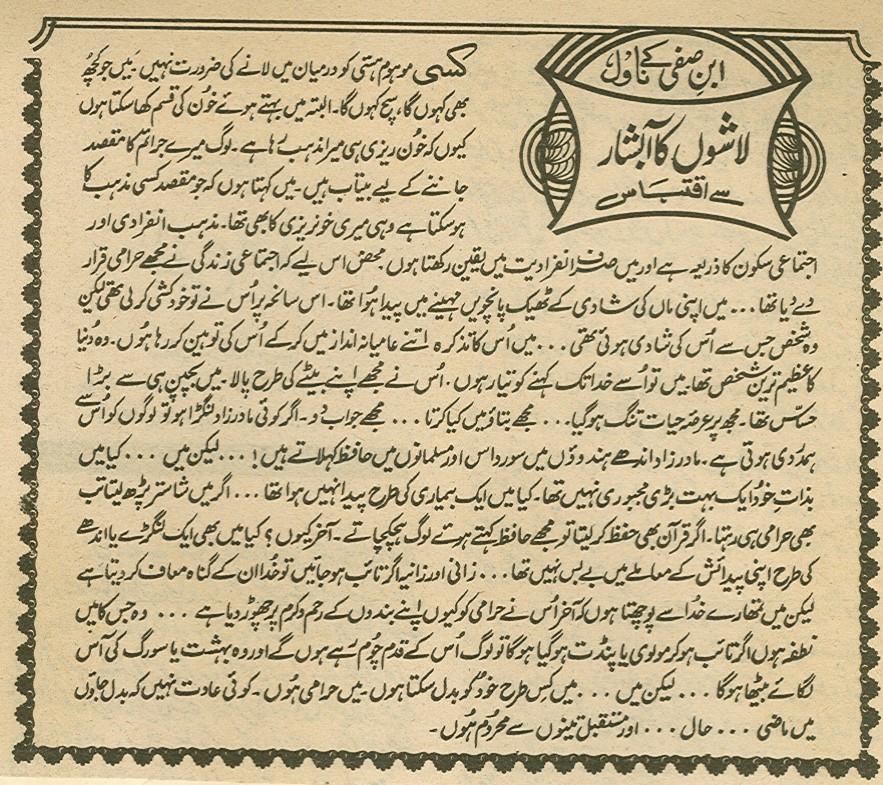 ابنِ صفی کے ناول
لاشوں کا آبشار
سے اقتباس
کسی موہوم ہستی کو درمیان میں لانے کی ضرورت نہیں۔ میں جو کچھ
بھی کہوں گا، سچ کہوں گا۔ البتہ میں بہتے ہوئے خون کی قسم کھا سکتا ہوں
کیوں کہ خوں ریزی ہی میرا مذہب رہا ہے۔ لوگ میرے جرائم کا مقصد
جاننے کے لیے بیتاب ہیں۔ میں کہتا ہوں کہ جو مقصد کسی مذہب کا
ہوسکتا ہے وہی میری خونریزی کا بھی تھا۔ مذہب انفرادی اور
اجتماعی سکون کا ذریعہ ہے اور میں صرف انفرادیت میں یقین رکھتا ہوں۔ محض اس لیے کہ اجتماعی زندگی نے مجھے حرامی قرار
دے دیا تھا... میں اپنی ماں کی شادی کے ٹھیک پانچویں مہینے میں پیدا ہوا تھا۔ اس سانحہ پر اُس نے تو خودکشی کرلی تھی لیکن
وہ شخص جس سے اُس کی شادی ہوئی تھی... میں اُس کا تذکرہ اتنے عامیانہ انداز میں کرکے اُس کی توہین کر رہا ہوں۔ وہ دُنیا
کا عظیم ترین شخص تھا۔ میں تو اُسے خدا تک کہنے کو تیار ہوں۔ اُس نے مجھے اپنے بیٹے کی طرح پالا۔ میں بچپن ہی سے بڑا
حساس تھا۔ مجھ پر عرصۂ حیات تنگ ہوگیا... مجھے بتاؤ میں کیا کرتا... مجھے جواب دو۔ اگر کوئی مادر زاد لنگڑا ہو تو لوگوں کو اُس سے
ہمدردی ہوتی ہے۔ مادر زاد اندھے ہندوؤں میں سورداس اور مسلمانوں میں حافظ کہلاتے ہیں!... لیکن میں... کیا میں
بذاتِ خود ایک بہت بڑی مجبوری نہیں تھا۔ کیا میں ایک بیماری کی طرح پیدا نہیں ہوا تھا... اگر میں شاستر پڑھ لیتا تب
بھی حرامی ہی رہتا۔ اگر قرآن بھی حفظ کر لیتا تو مجھے حافظ کہتے ہوئے لوگ ہچکچاتے۔ آخر کیوں؟ کیا میں بھی ایک لنگڑے یا اندھے
کی طرح اپنی پیدائش کے معاملے میں بے بس نہیں تھا... زانی اور زانیہ اگر تائب ہوجائیں تو خُدا ان کے گناہ معاف کر دیتا ہے
لیکن میں تمھارے خُدا سے پوچھتا ہوں کہ آخر اُس نے حرامی کو کیوں اپنے بندوں کے رحم و کرم پر چھوڑ دیا ہے... وہ جس کا میں
نطفہ ہوں اگر تائب ہوکر مولوی یا پنڈت ہوگیا ہوگا تو لوگ اُس کے قدم چُوم رہے ہوں گے اور وہ بہشت یا سورگ کی آس
لگائے بیٹھا ہوگا... لیکن میں... میں کس طرح خود کو بدل سکتا ہوں۔ میں حرامی ہوں۔ کوئی عادت نہیں کہ بدل جاؤں
میں ماضی... حال... اور مستقبل تینوں سے محروم ہوں۔